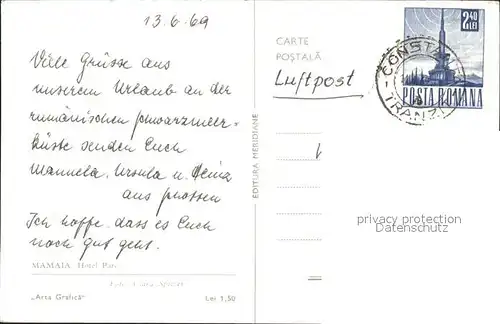 13.6.69
Viele Grüsse aus
unserem Urlaub an der
rumänischen Schwarzmeer-
küste senden Euch
Manuela, Ursula u. Heinz
aus
Ich hoffe, dass es Euch
noch gut geht.
MAMAIA. Hotel Parc
„Arta Grafică"
Lei 1,50
EDITURA MERIDIANE
CARTE
POȘTALĂ
Luftpost
2,40
LEI
CONSTANȚA
TRANZIT
POSTA ROMANA
privacy protection
watermark